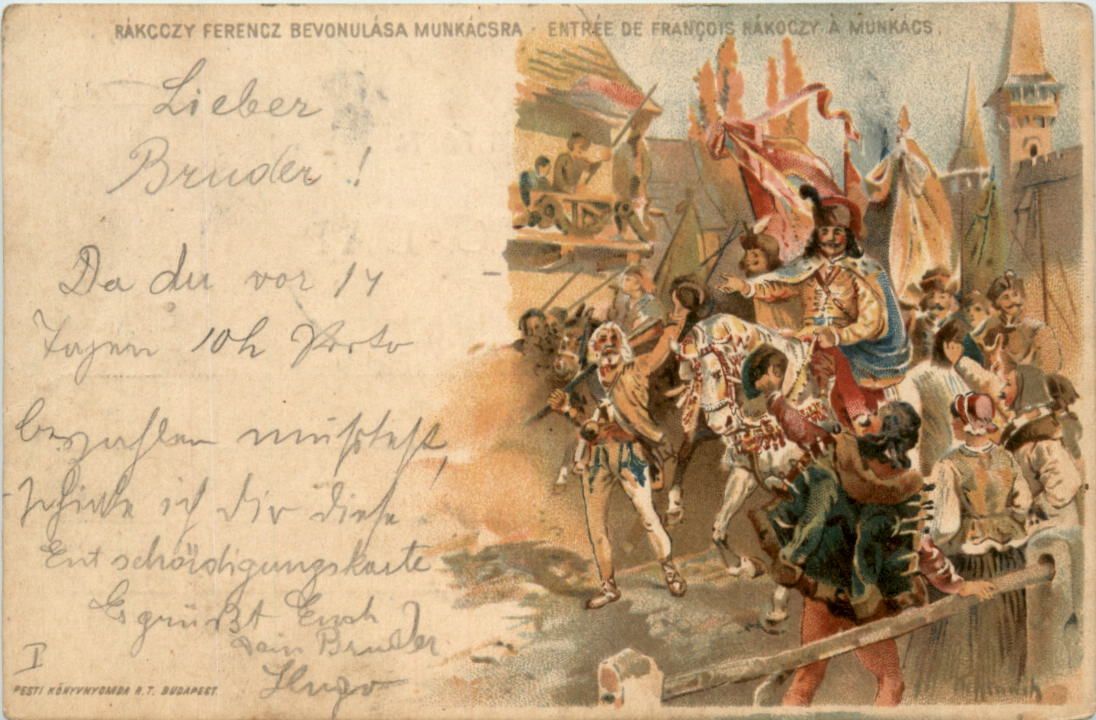 RÁKCCZY FERENCZ BEVONULÁSA MUNKÁCSRA · ENTRÉE DE FRANÇOIS RÁKOCZY À MUNKÁCS.
Lieber
Bruder!
Da du vor 14
Tagen 10h Porto
bezahlen mußtest,
schicke ich dir diese
Entschädigungskarte
Es grüßt Euch
dein Bruder
Hugo
I
PESTI KÖNYVNYOMDA R. T. BUDAPEST.